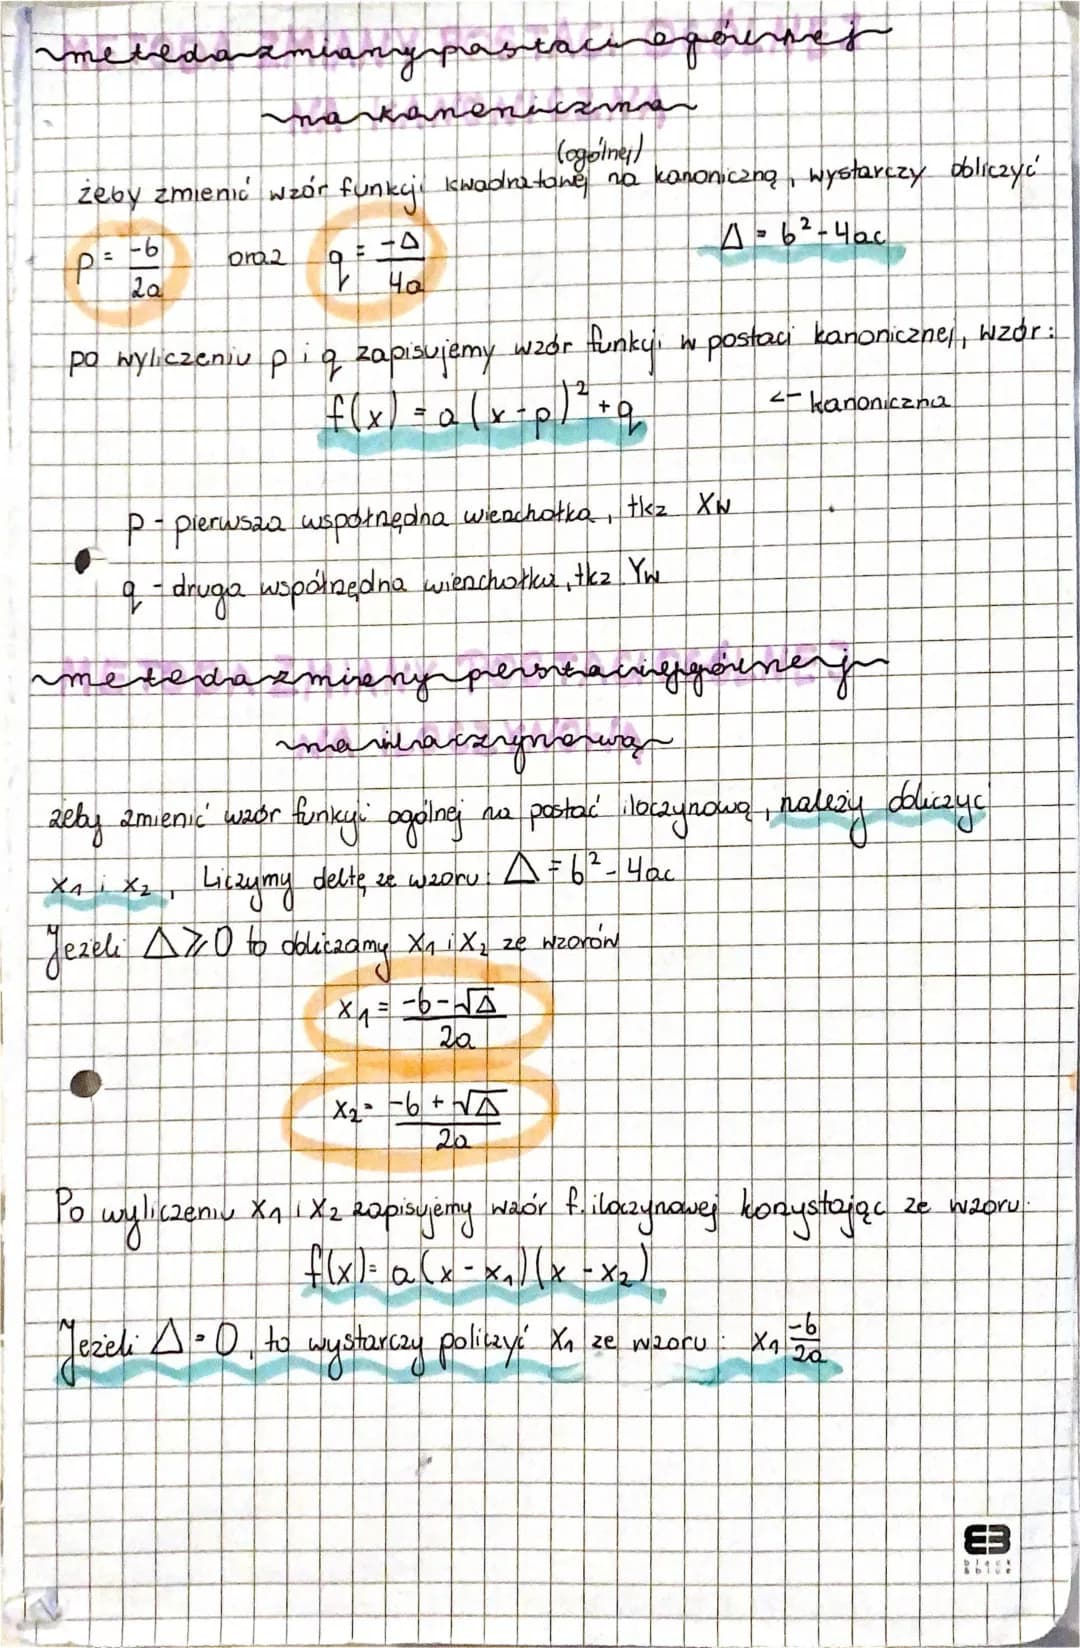 metoda zmiany postaci ogólnej
na kanoniczną
(ogólnej)
żeby zmienić wzór funkcji kwadratowej na kanoniczną, wystarczy obliczyć
p = -b/2a oraz q = -Δ/4a Δ = b² - 4ac
po wyliczeniu p i q zapisujemy wzór funkcji w postaci kanonicznej, wzór:
f(x) = a(x-p)² + q <- kanoniczna
p - pierwsza współrzędna wierzchołka, tkz Xw
q - druga współrzędna wierzchołka, tkz Yw
metoda zmiany postaci ogólnej
na iloczynową
żeby zmienić wzór funkcji ogólnej na postać iloczynową, należy obliczyć
x₁ i x₂, Liczymy deltę ze wzoru: Δ = b² - 4ac
Jeżeli Δ ⩾ 0 to obliczamy x₁ i x₂ ze wzorów
x₁ = -b-√Δ/2a
x₂ = -b+√Δ/2a
Po wyliczeniu x₁ i x₂ zapisujemy wzór f. iloczynowej korzystając ze wzoru:
f(x) = a(x - x₁)(x - x₂)
Jeżeli Δ = 0, to wystarczy policzyć x₁ ze wzoru: x₁ = -b/2a
black
&blue